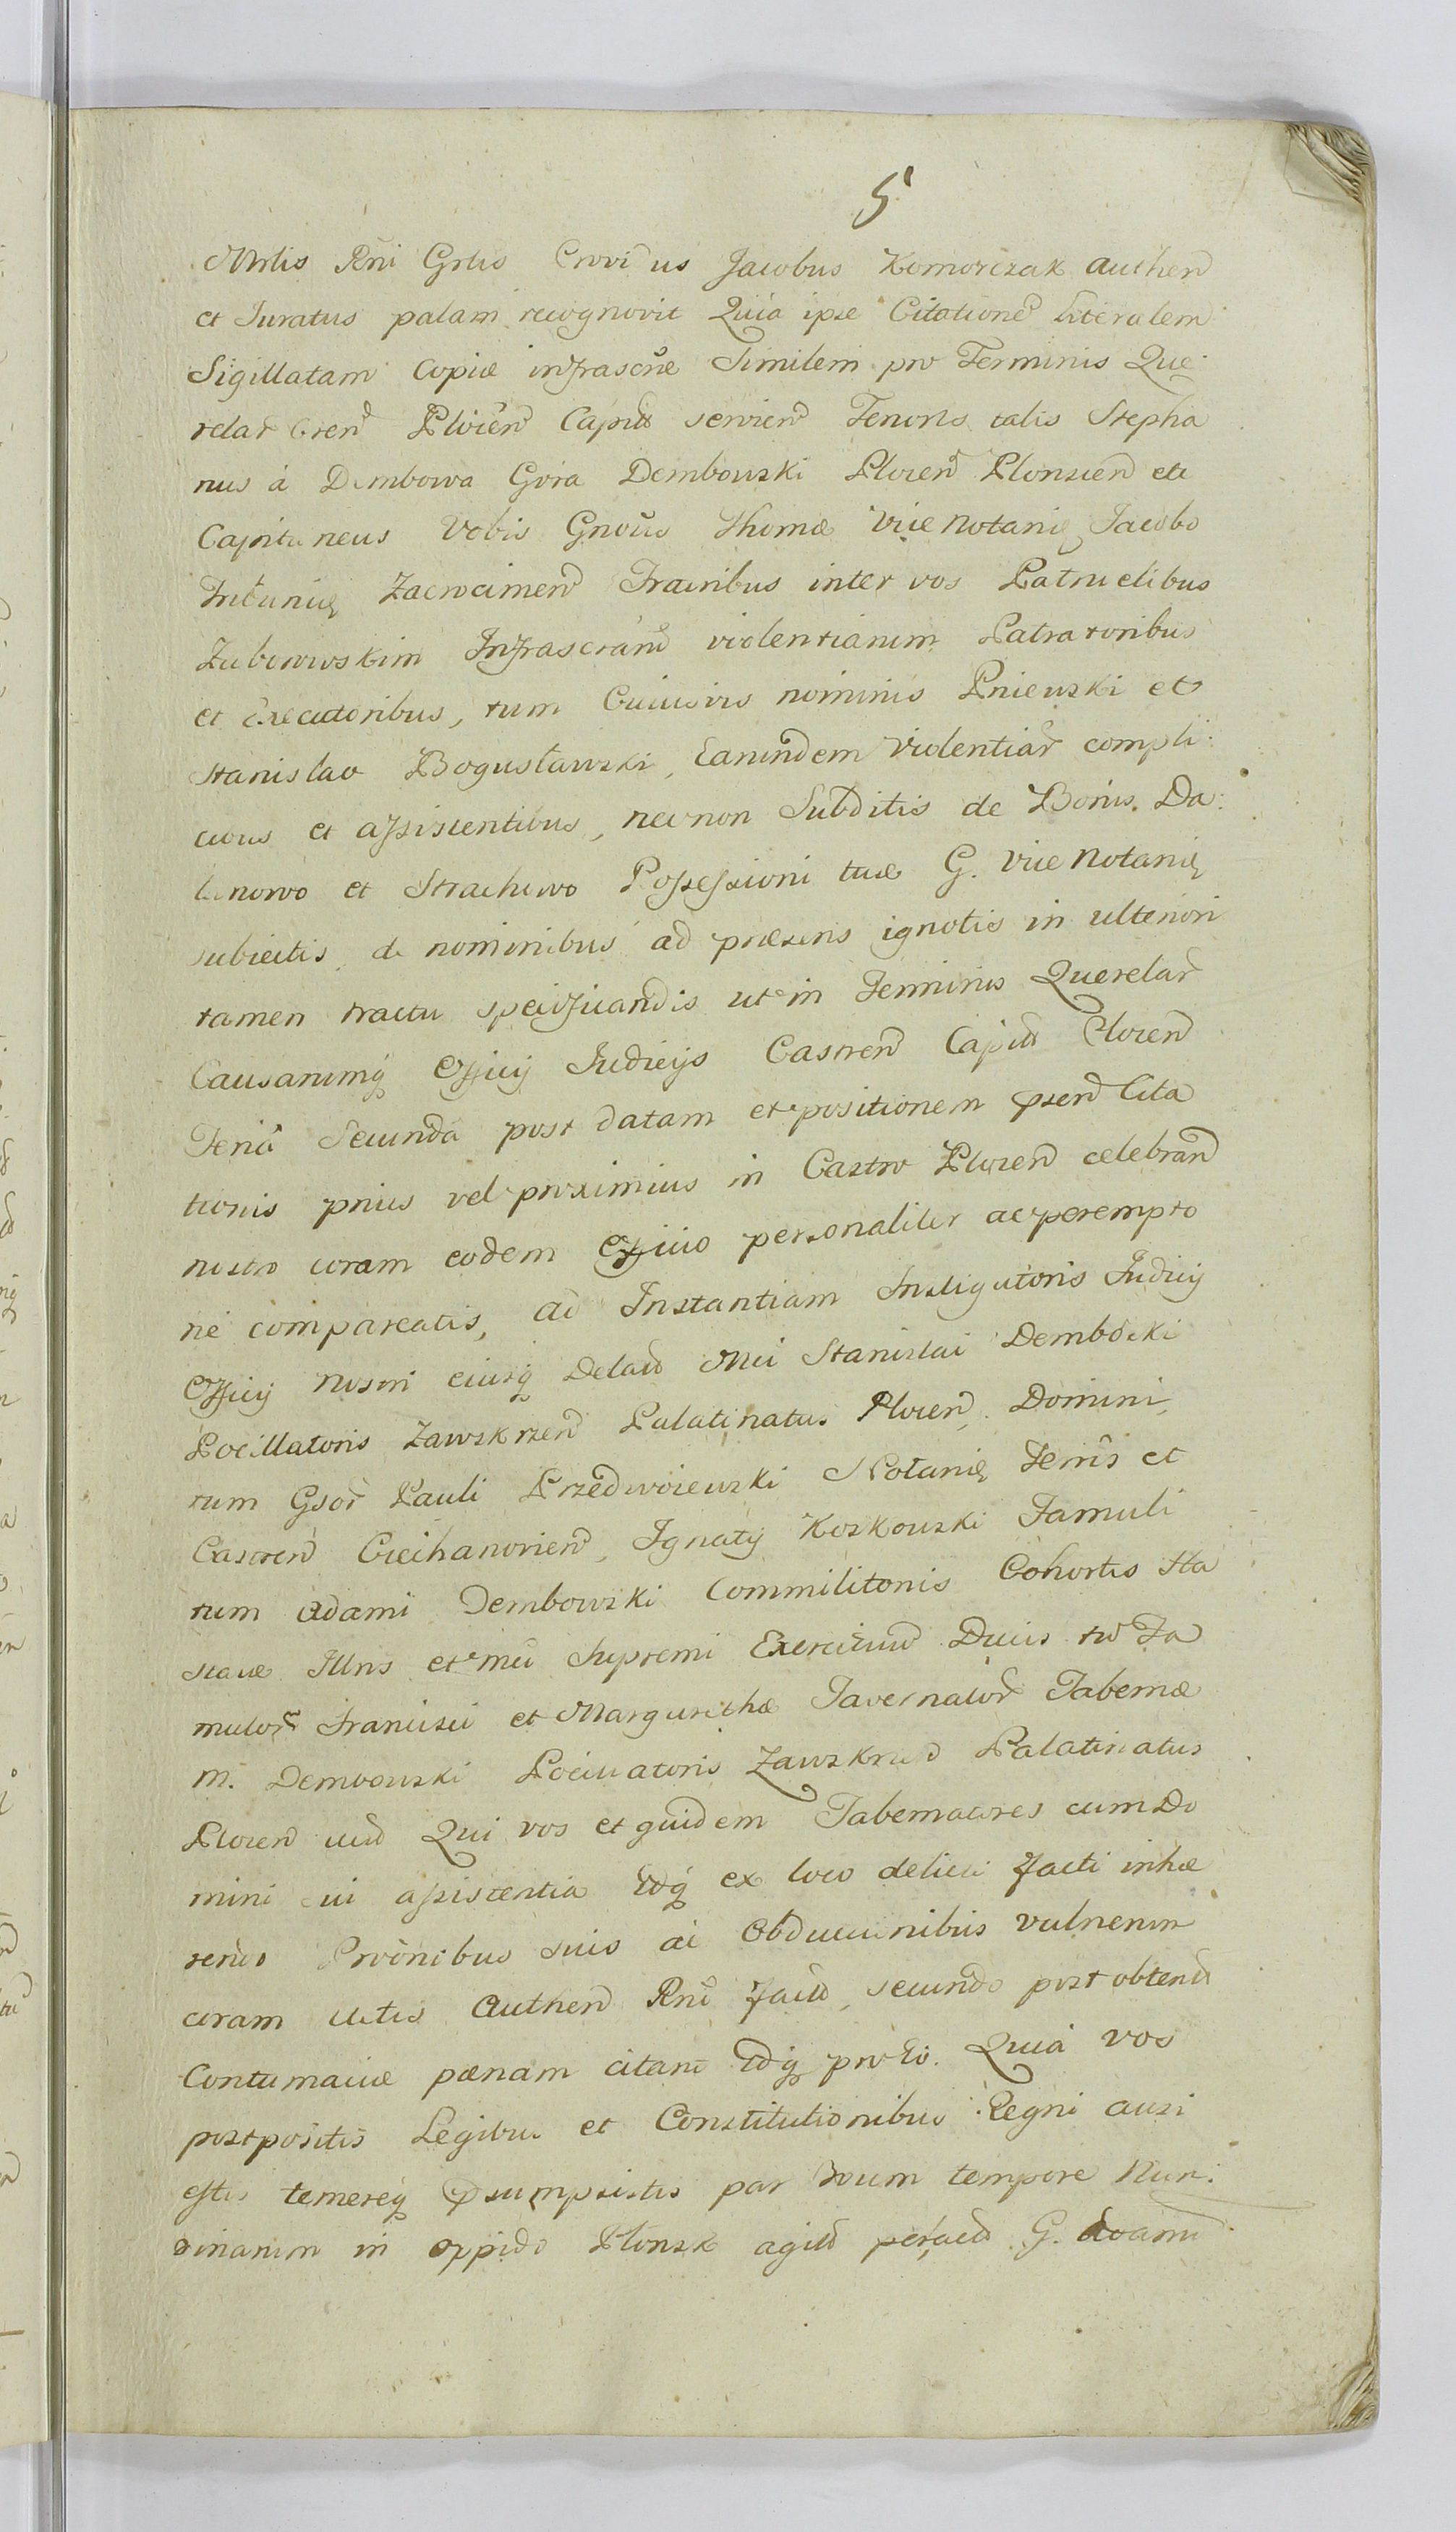 5
Mrlis Rni Grlis Providus Jacobus Komorczak authen
et Juratus palam recognovit Quia ipse Citatione Literalem
Sigillatam Copiæ infrascrie Similem pro Terminis Que
relar Cren Plocen Capitt servien Tenoris talis Stepha
nus à Dembowa Gora Dembowski Plocen Plonscen etc
Capitaneus Vobis Gnosis Thomæ Vice Notario Jacobo
Tribuno Zacrocimen Fratribus inter vos Patruelibus
Infrascrarum violentiarum Patratoribus
et Executoribus, tum Cuiusvis nominis Pniewski et
Stanislao Bogusławski, Earundem violentiar compli
cibus et assistentibus, necnon Subditis de Bonis. Da
lanowo et Strachowo Possessioni tuæ G. Vice Notarie
subiectis, de nominibus ad præsens ignotis in ulteriori
tamen tractu specificandis ut in Terminis Querelar
Causarumq Officij Judicijs Castren Capitt Plocen
Feriâ Secunda post datam et positionem psen Cita
tionis prius vel proximius in Castro Plocen celebran
nostro coram eodem Officio personaliter ac perempto
rie compareatis, ad Instantiam Instigatoris Judicij
Officij nostri eiusq Delatt Mci Stanislai Dembocki
Pocillatoris Zawskrzen Palatinatus Plocen, Domini,
tum Gsor Pauli Przedwoiewski Notarie Terris et
Castren Ciechanovien, Ignatij Koskowski Famuli
tum Adami Dembowski Commilitonis Cohortis Ha
statæ Illris et mci Supremi Exercituum Ducis tu Fa
mulor Francisci et Margarethæ Tavernator Tabernæ
m. Dembowski Pocillatoris Zawskrzen Palatinatus
Plocen Qui vos et quidem Tabernatores cum Do
mini sui assistentia Idq ex loco delicti facti inhæ
rendo Protionibus suis ac Obductionibus vulnerum
coram actis Authen Rni factt, secundo post obtentt
Contumaciæ pænam citant Idq pro Eo. Quia vos
postpositis Legibus et Constitutionibus Regni ausi
estis temereq psumpsistis par Boum tempore Nun
dinarum in oppido Plonsk agitt peractt G. Adami